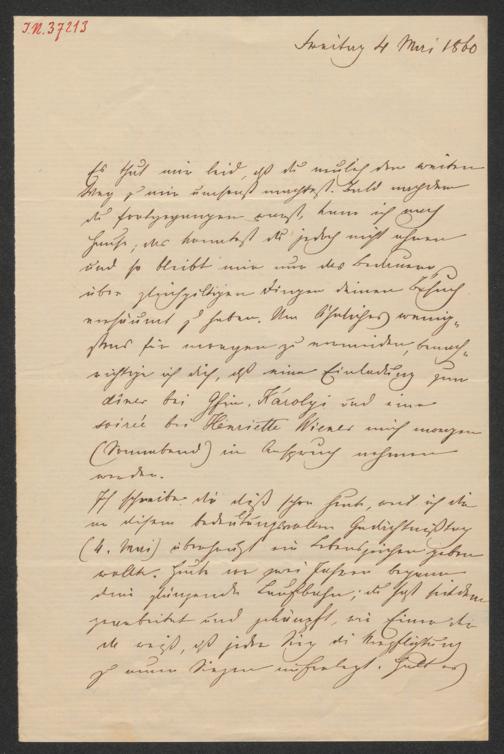 I.N. 37213
Freitag 4 Mai 1860
Es thut mir leid, daß du neulich den weiten
Weg zu mir umsonst machtest. Bald nachdem
du fortgegangen warst, kam ich nach
Hause; das konntest du jedoch nicht ahnen
und so bleibt mir nur das Bedauern,
über gleichgiltigen Dingen deinen Besuch
versäumt zu haben. Um Ähnliches wenig-
stens für morgen zu vermeiden, benach-
richtige ich dich, daß eine Einladung zum
dîner bei Gfin. Károlyi und eine
soirée bei Henriette Wiener mich morgen
(Sonnabend) in Anspruch nehmen
werden.
Ich schreibe dir dieß schon heute, weil ich dir
an diesem bedeutungsvollen Gedächtnißtag
(4. Mai) überhaupt ein Lebenszeichen geben
wollte. Heute vor zwei Jahren begann
deine glänzende Laufbahn; du hast seitdem
gearbeitet und gekämpft, wie Einer der
da weiß, daß jeder Sieg die Verpflichtung
zu neuen Siegen auferlegt.